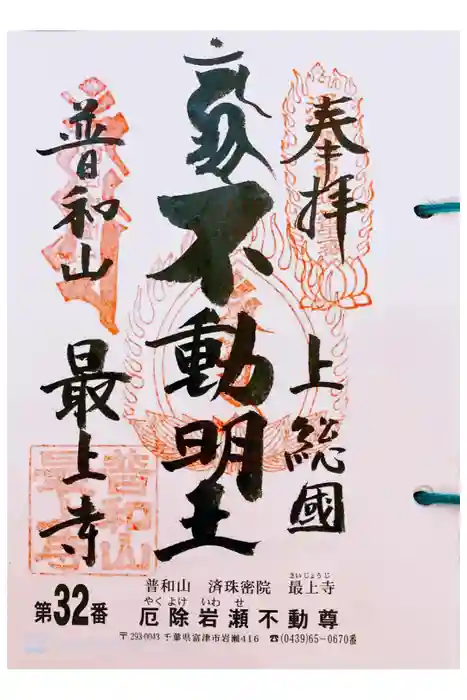 奉拝
上総國
不動明王
普和山
最上寺
普和山
最上寺
第32番
普和山 済珠密院 最上寺
さいじょうじ
厄除岩瀬不動尊
やくよけ いわせ
〒293-0043 千葉県富津市岩瀬416 ☎(0439)65-0670番